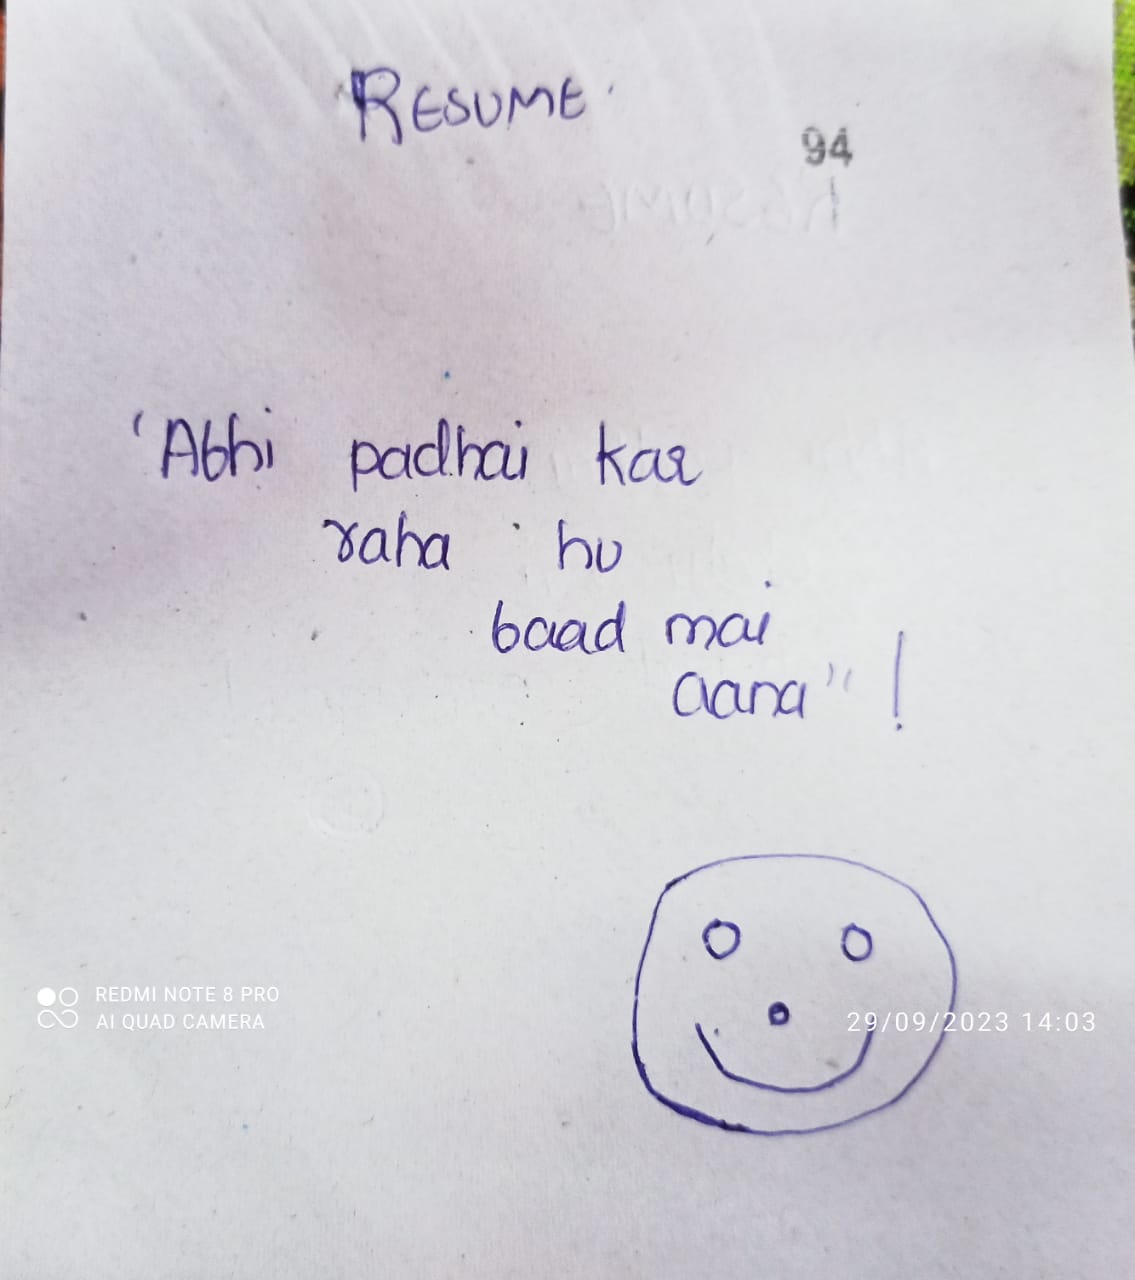 RESUME
94
'Abhi padhai kar
raha hu
baad mai
aana" !
REDMI NOTE 8 PRO
AI QUAD CAMERA
29/09/2023 14:03